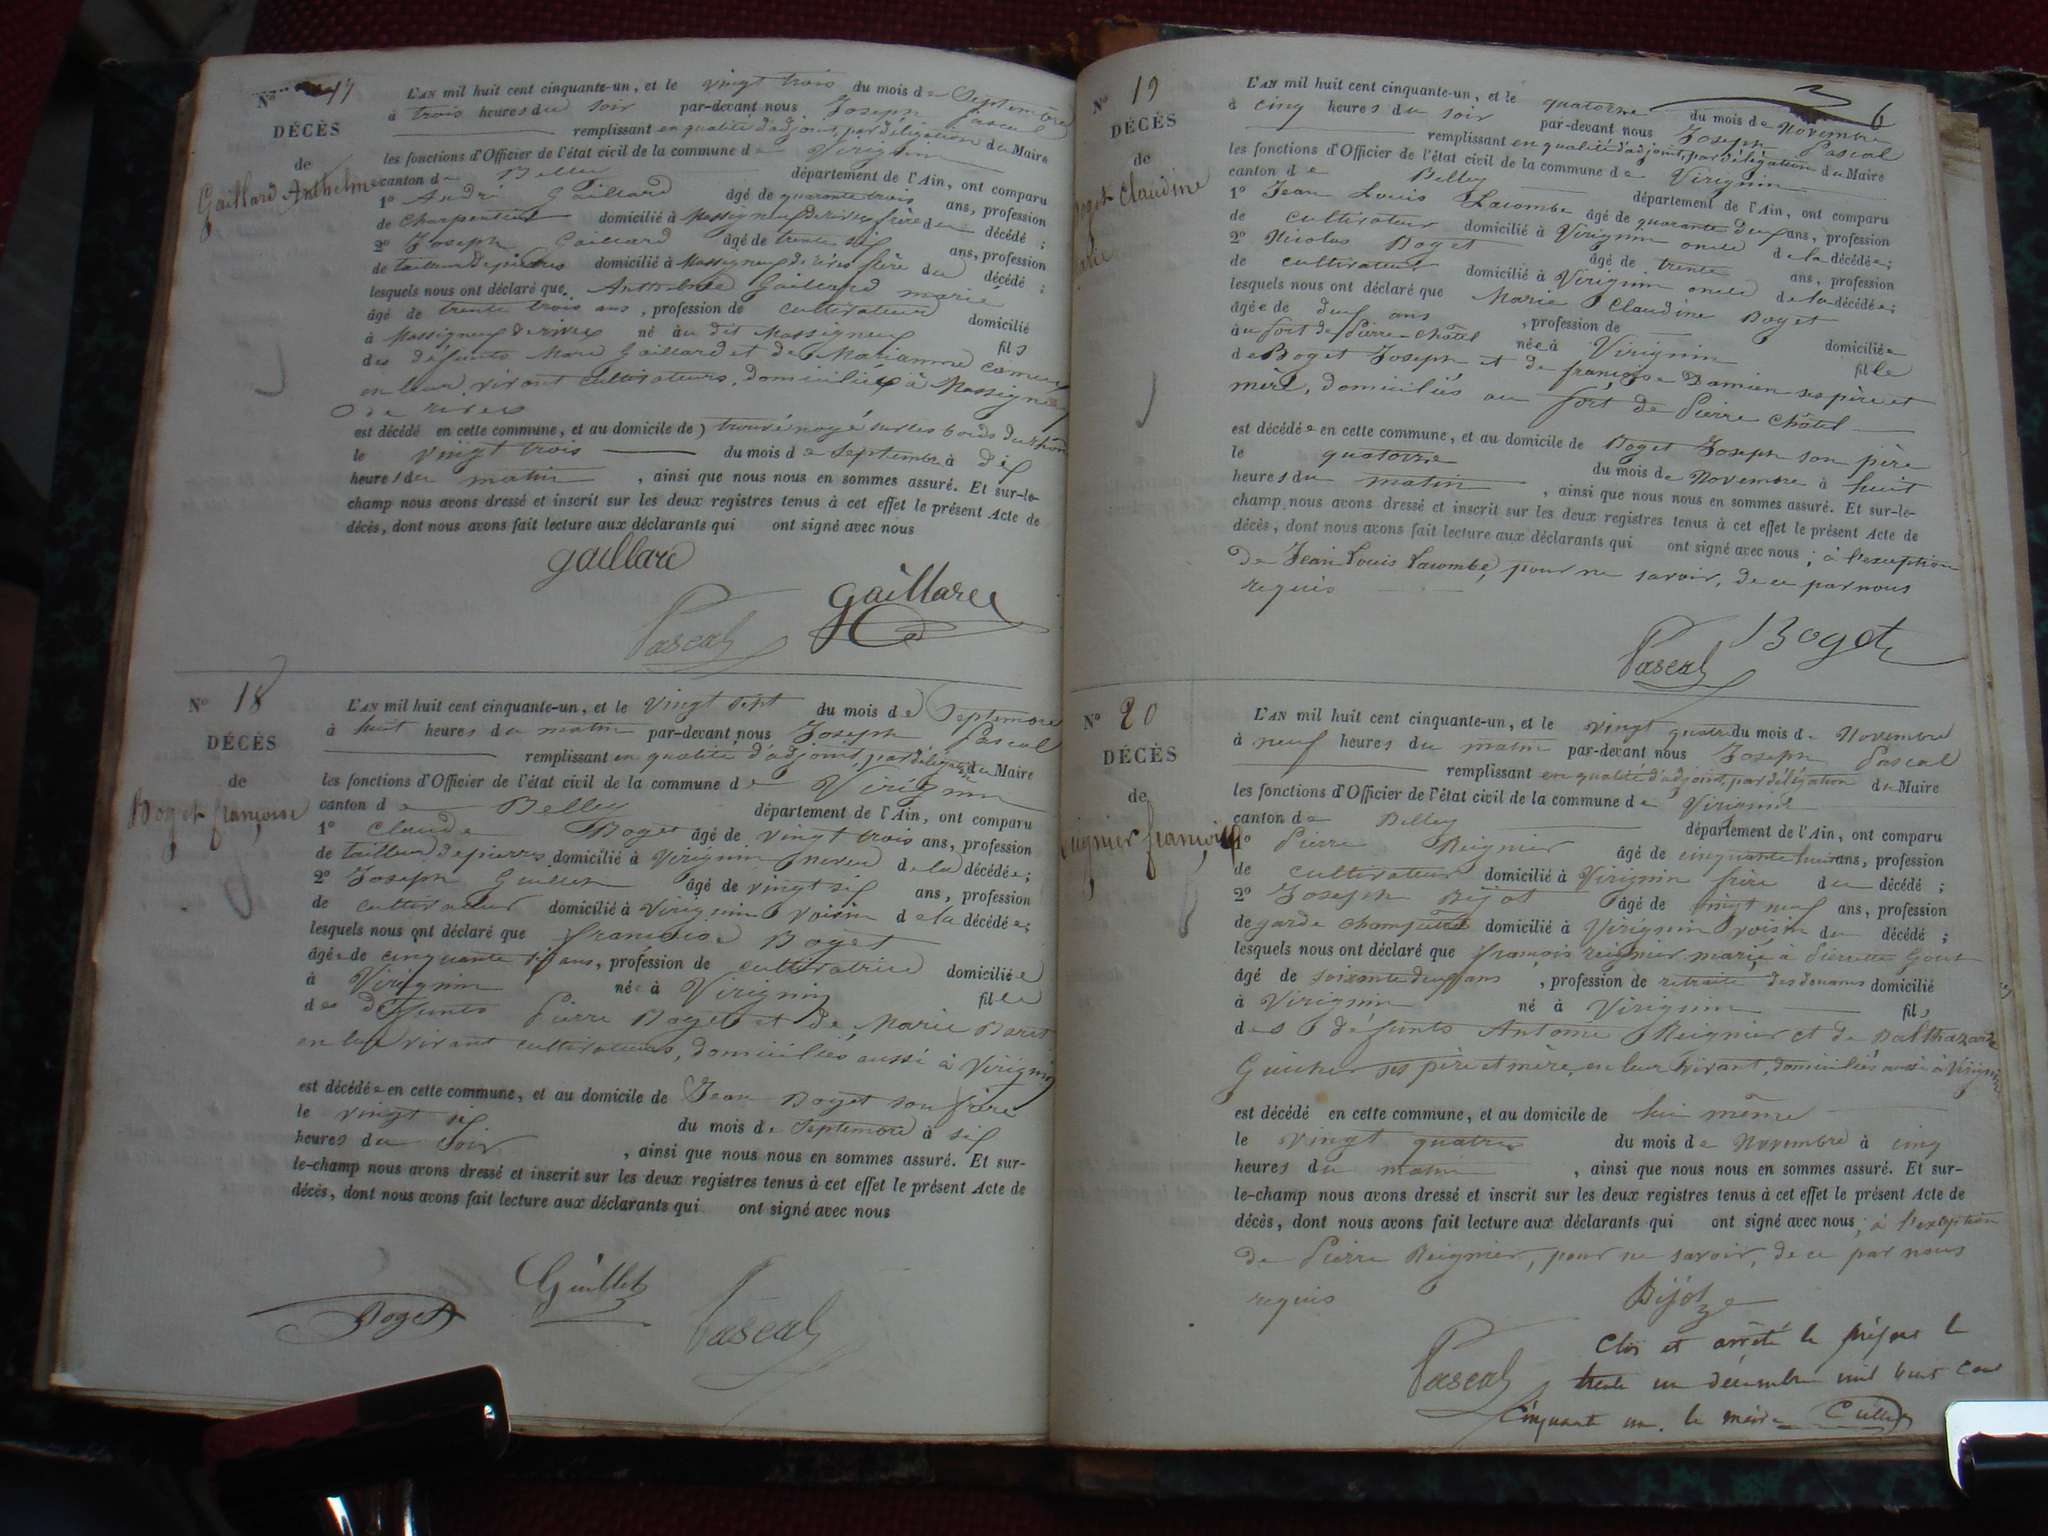 Nº 17
DÉCÈS
de
Gaillard Anthelme
L'AN mil huit cent cinquante-un, et le vingt trois du mois de Septembre
à trois heures du soir par-devant nous Joseph Pascal
remplissant en qualité d'adjoint, par délégation du Maire
les fonctions d'Officier de l'état civil de la commune de Virignin
canton de Belley département de l'Ain, ont comparu
1º André Gaillard âgé de quarante trois ans, profession
de charpentier domicilié à Massigneu de rives frère du décédé ;
2º Joseph Gaillard âgé de trente six ans, profession
de tailleur de pierres domicilié à Massigneu de rives frère du décédé ;
lesquels nous ont déclaré que Anthelme Gaillard marié
âgé de trente trois ans, profession de cultivateur domicilié
à Massigneu de rives né au dit Massigneu fils
des défunts Marc Gaillard et de Marianne
en leur vivant cultivateurs, domiciliés à Massigneu
de rives
est décédé en cette commune, et au domicile de) trouvé noyé sur les bords du rhône
le vingt trois du mois de Septembre à dix
heures du matin, ainsi que nous nous en sommes assuré. Et sur-le-
champ nous avons dressé et inscrit sur les deux registres tenus à cet effet le présent Acte de
décès, dont nous avons fait lecture aux déclarants qui ont signé avec nous
gaillard
gaillard
Pascal
Nº 18
DÉCÈS
de
Boget françoise
L'AN mil huit cent cinquante-un, et le vingt sept du mois de Septembre
à huit heures du matin par-devant nous Joseph Pascal
remplissant en qualité d'adjoint, par délégation du Maire
les fonctions d'Officier de l'état civil de la commune de Virignin
canton de Belley département de l'Ain, ont comparu
1º Claude Boget âgé de vingt trois ans, profession
de tailleur de pierres domicilié à Virignin neveu de la décédée;
2º Joseph Guillet âgé de vingt six ans, profession
de cultivateur domicilié à Virignin voisin de la décédée;
lesquels nous ont déclaré que françoise Boget
âgée de cinquante six ans, profession de cultivatrice domiciliée
à Virignin née à Virignin fille
des défunts Pierre Boget et de Marie
en leur vivant cultivateurs, domiciliés aussi à Virignin
est décédée en cette commune, et au domicile de Jean Boget son frère
le vingt six du mois de Septembre à six
heures du soir, ainsi que nous nous en sommes assuré. Et sur-
le-champ nous avons dressé et inscrit sur les deux registres tenus à cet effet le présent Acte de
décès, dont nous avons fait lecture aux déclarants qui ont signé avec nous
Guillet
Boget
Pascal
6
Nº 19
DÉCÈS
de
Boget Claudine
L'AN mil huit cent cinquante-un, et le quatorze du mois de Novembre
à cinq heures du soir par-devant nous Joseph Pascal
remplissant en qualité d'adjoint, par délégation du Maire
les fonctions d'Officier de l'état civil de la commune de Virignin
canton de Belley département de l'Ain, ont comparu
1º Jean Louis Lacombe âgé de quarante deux ans, profession
de cultivateur domicilié à Virignin oncle de la décédée;
2º Nicolas Boget âgé de trente ans, profession
de cultivateur domicilié à Virignin oncle de la décédée;
lesquels nous ont déclaré que Marie Claudine Boget
âgée de deux ans, profession de domiciliée
au fort de Pierre-châtel née à Virignin fille
de Boget Joseph et de françoise Damien ses père et
mère, domiciliés au fort de Pierre Châtel
est décédée en cette commune, et au domicile de Boget Joseph son père
le quatorze du mois de Novembre à huit
heures du matin, ainsi que nous nous en sommes assuré. Et sur-le-
champ nous avons dressé et inscrit sur les deux registres tenus à cet effet le présent Acte de
décès, dont nous avons fait lecture aux déclarants qui ont signé avec nous; à l'exception
de Jean Louis Lacombe, pour ne savoir, de ce par nous
requis
Boget
Pascal
Nº 20
DÉCÈS
de
Reignier françois
L'AN mil huit cent cinquante-un, et le vingt quatre du mois de Novembre
à neuf heures du matin par-devant nous Joseph Pascal
remplissant en qualité d'adjoint, par délégation du Maire
les fonctions d'Officier de l'état civil de la commune de Virignin
canton de Belley département de l'Ain, ont comparu
1º Pierre Reignier âgé de cinquante huit ans, profession
de cultivateur domicilié à Virignin frère du décédé ;
2º Joseph Bijot âgé de vingt neuf ans, profession
de garde champêtre domicilié à Virignin voisin du décédé ;
lesquels nous ont déclaré que françois reignier marié à Pierrette
âgé de soixante deux ans, profession de retraité des douanes domicilié
à Virignin né à Virignin fils
des défunts Antoine Reignier et de Balthazarde
ses père et mère, en leur vivant, domiciliés aussi à Virignin
est décédé en cette commune, et au domicile de lui même
le vingt quatre du mois de Novembre à cinq
heures du matin, ainsi que nous nous en sommes assuré. Et sur-
le-champ nous avons dressé et inscrit sur les deux registres tenus à cet effet le présent Acte de
décès, dont nous avons fait lecture aux déclarants qui ont signé avec nous, à l'exception
de Pierre Reignier, pour ne savoir, de ce par nous
requis
Bijot
Pascal
Clos et arrêté le présent le
trente un décembre mil huit cent
cinquante un. le maire